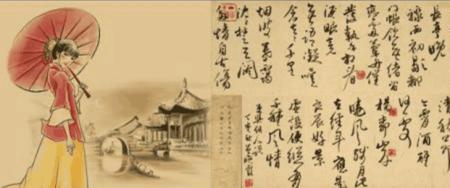 長亭晚
驟雨初歇都
門帳飲無緒留
處蘭舟催
發執手相看
淚眼竟
無語凝噎
念去去千里
烟波暮靄
沉沉楚天闊
多情自古傷
清秋節今
宵酒醒
何處
楊柳岸
曉風殘月此
去經年應是
良辰好景
虛設便縱有
千種風情
更與何人說